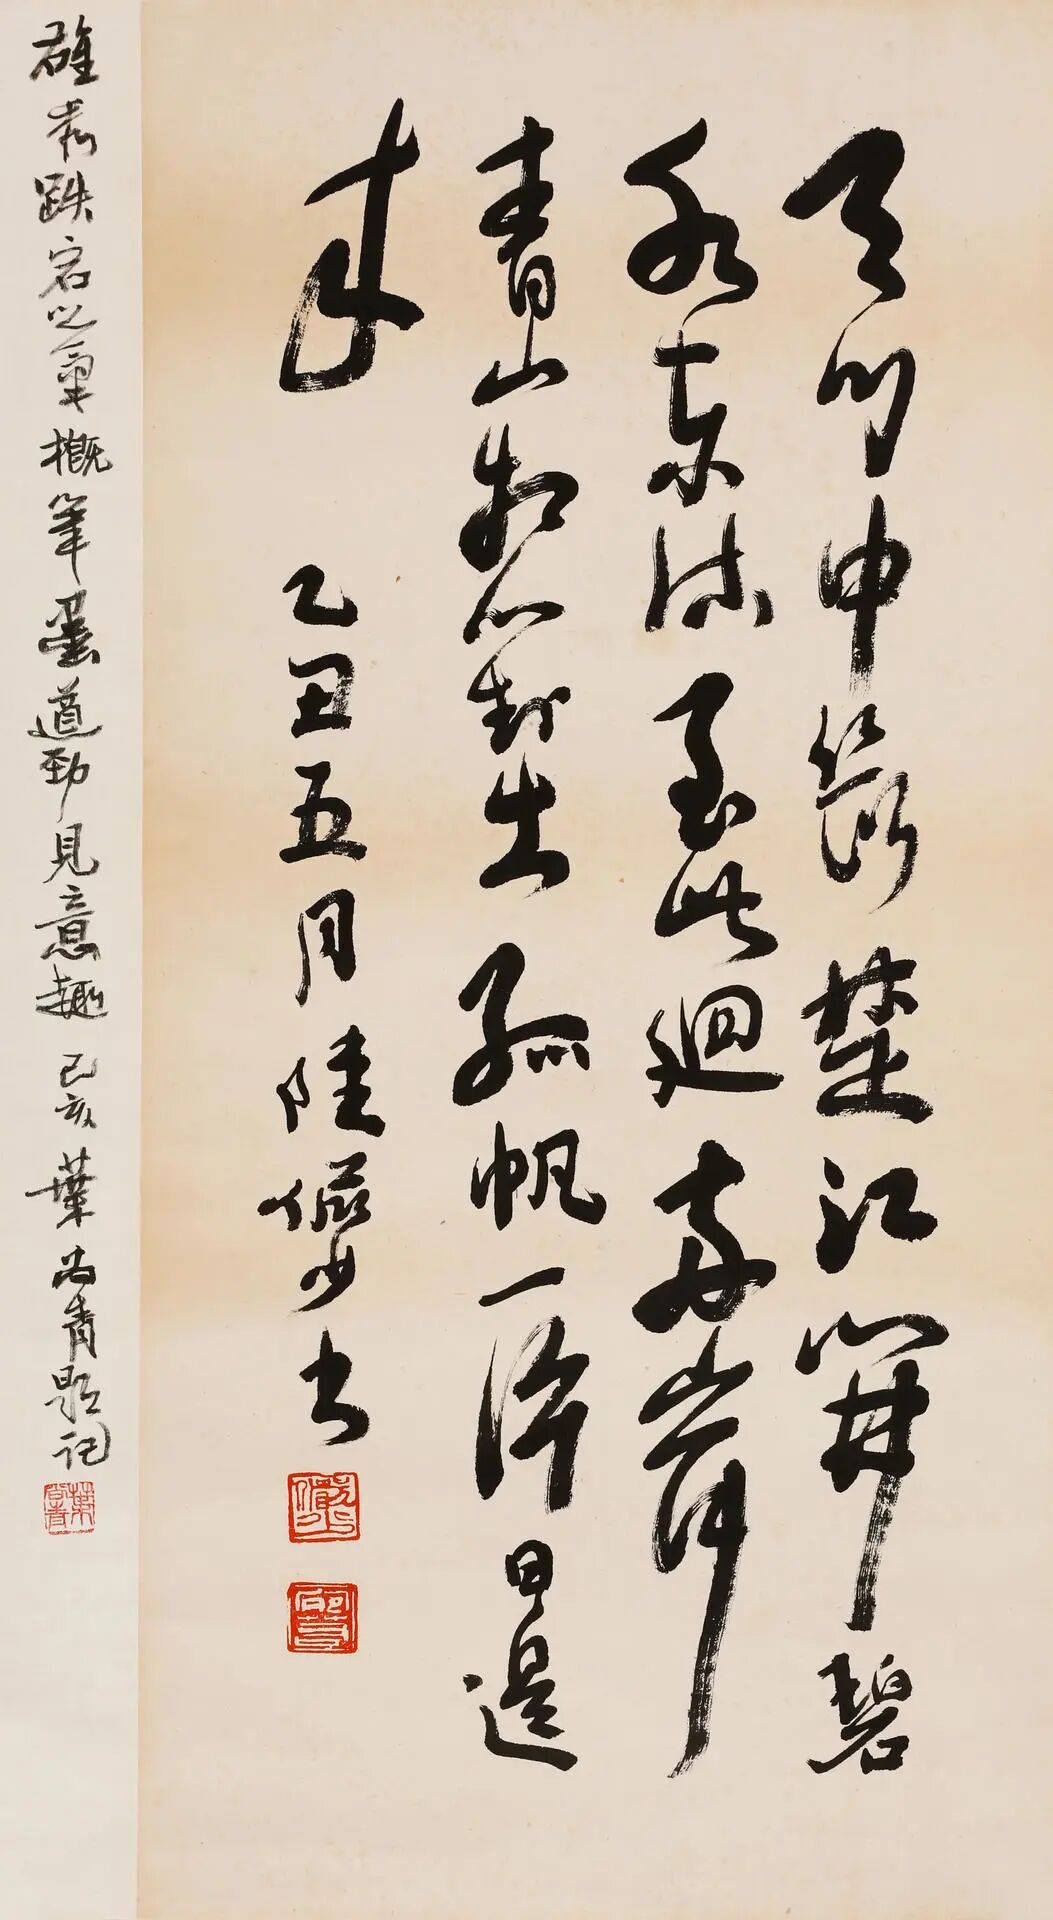 天門中斷楚江開碧
水東流至此迴兩岸
青山相對出孤帆一片日邊
來
乙丑五月陸儼少書
儼少
宛若
雄奇跌宕之氣概筆墨遒勁見意趣
己亥葉尚青題記
葉尚青